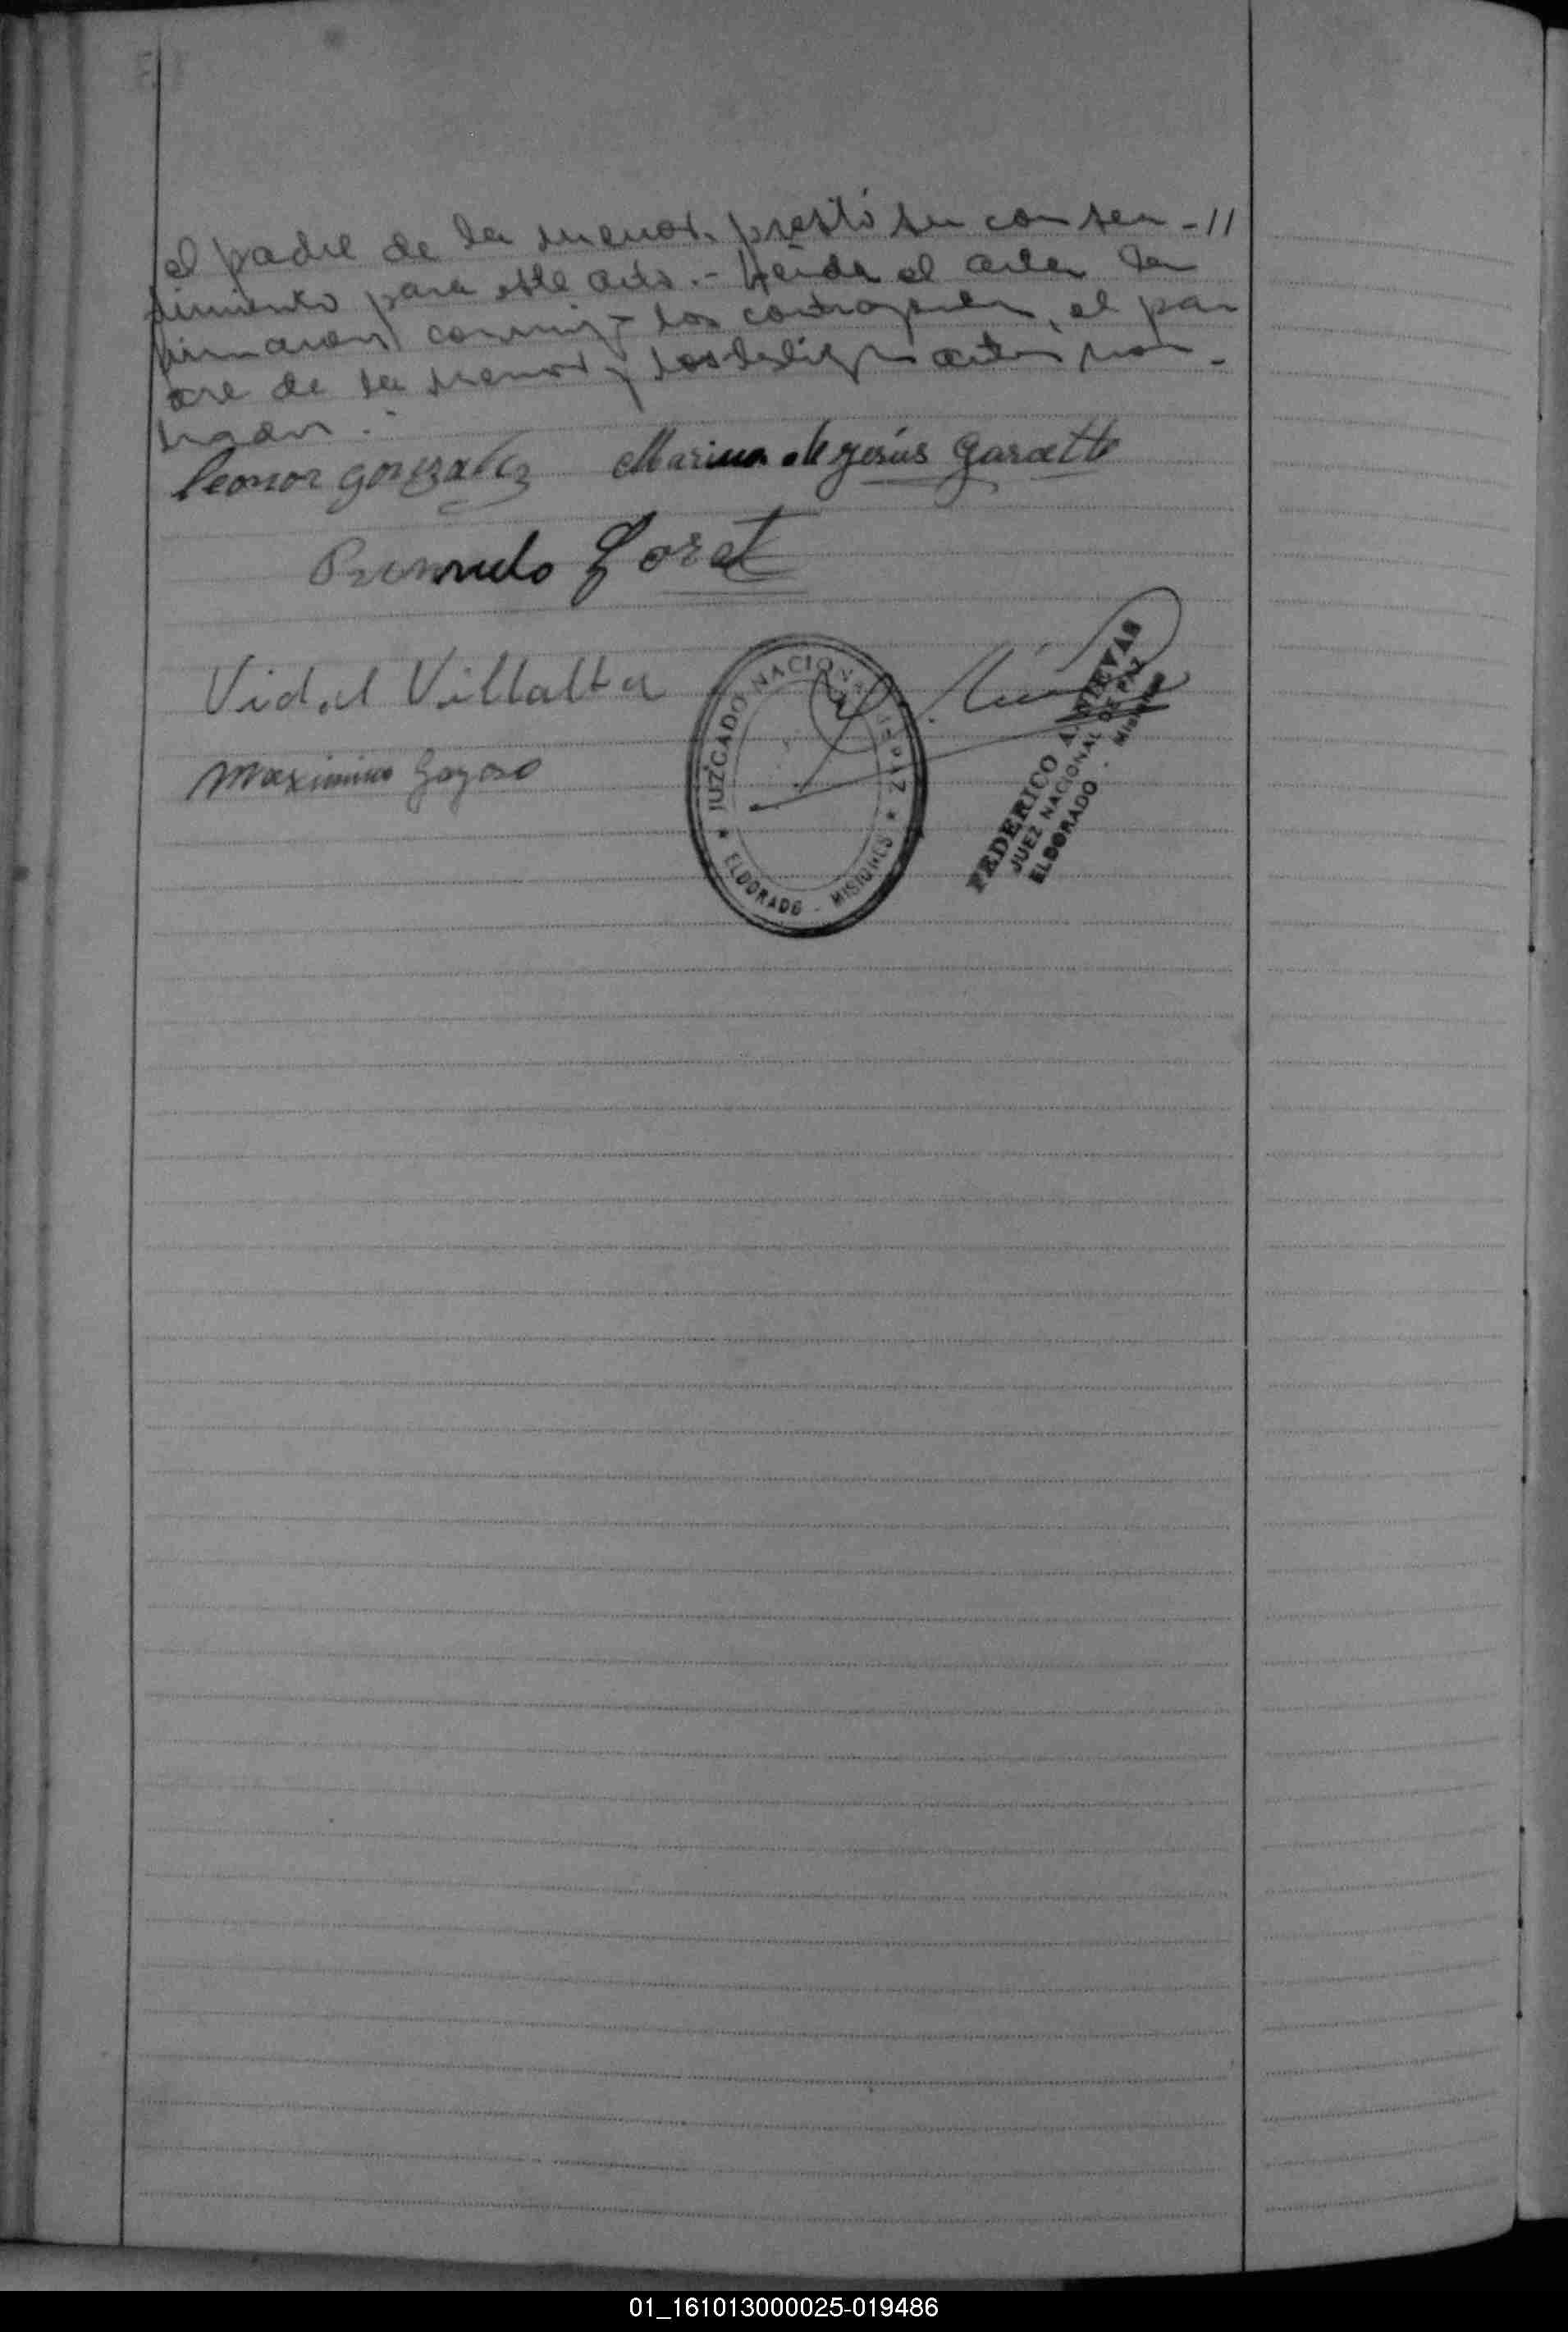 el padre de la menor prestó su consen-//
timiento para este acto.- Leída el acta la
firmaron conmigo los contrayentes, el pa
dre de la menor y los testigos antes nom-
brados.-
Leonor Gonzalez Marina de Jesús
Vidal Villalba
Maximino Gayoso
JUZGADO NACIONAL DE PAZ
★ ELDORADO - MISIONES ★
FEDERICO A. NIEVAS
JUEZ NACIONAL DE PAZ
ELDORADO - Misiones
01_161013000025-019486